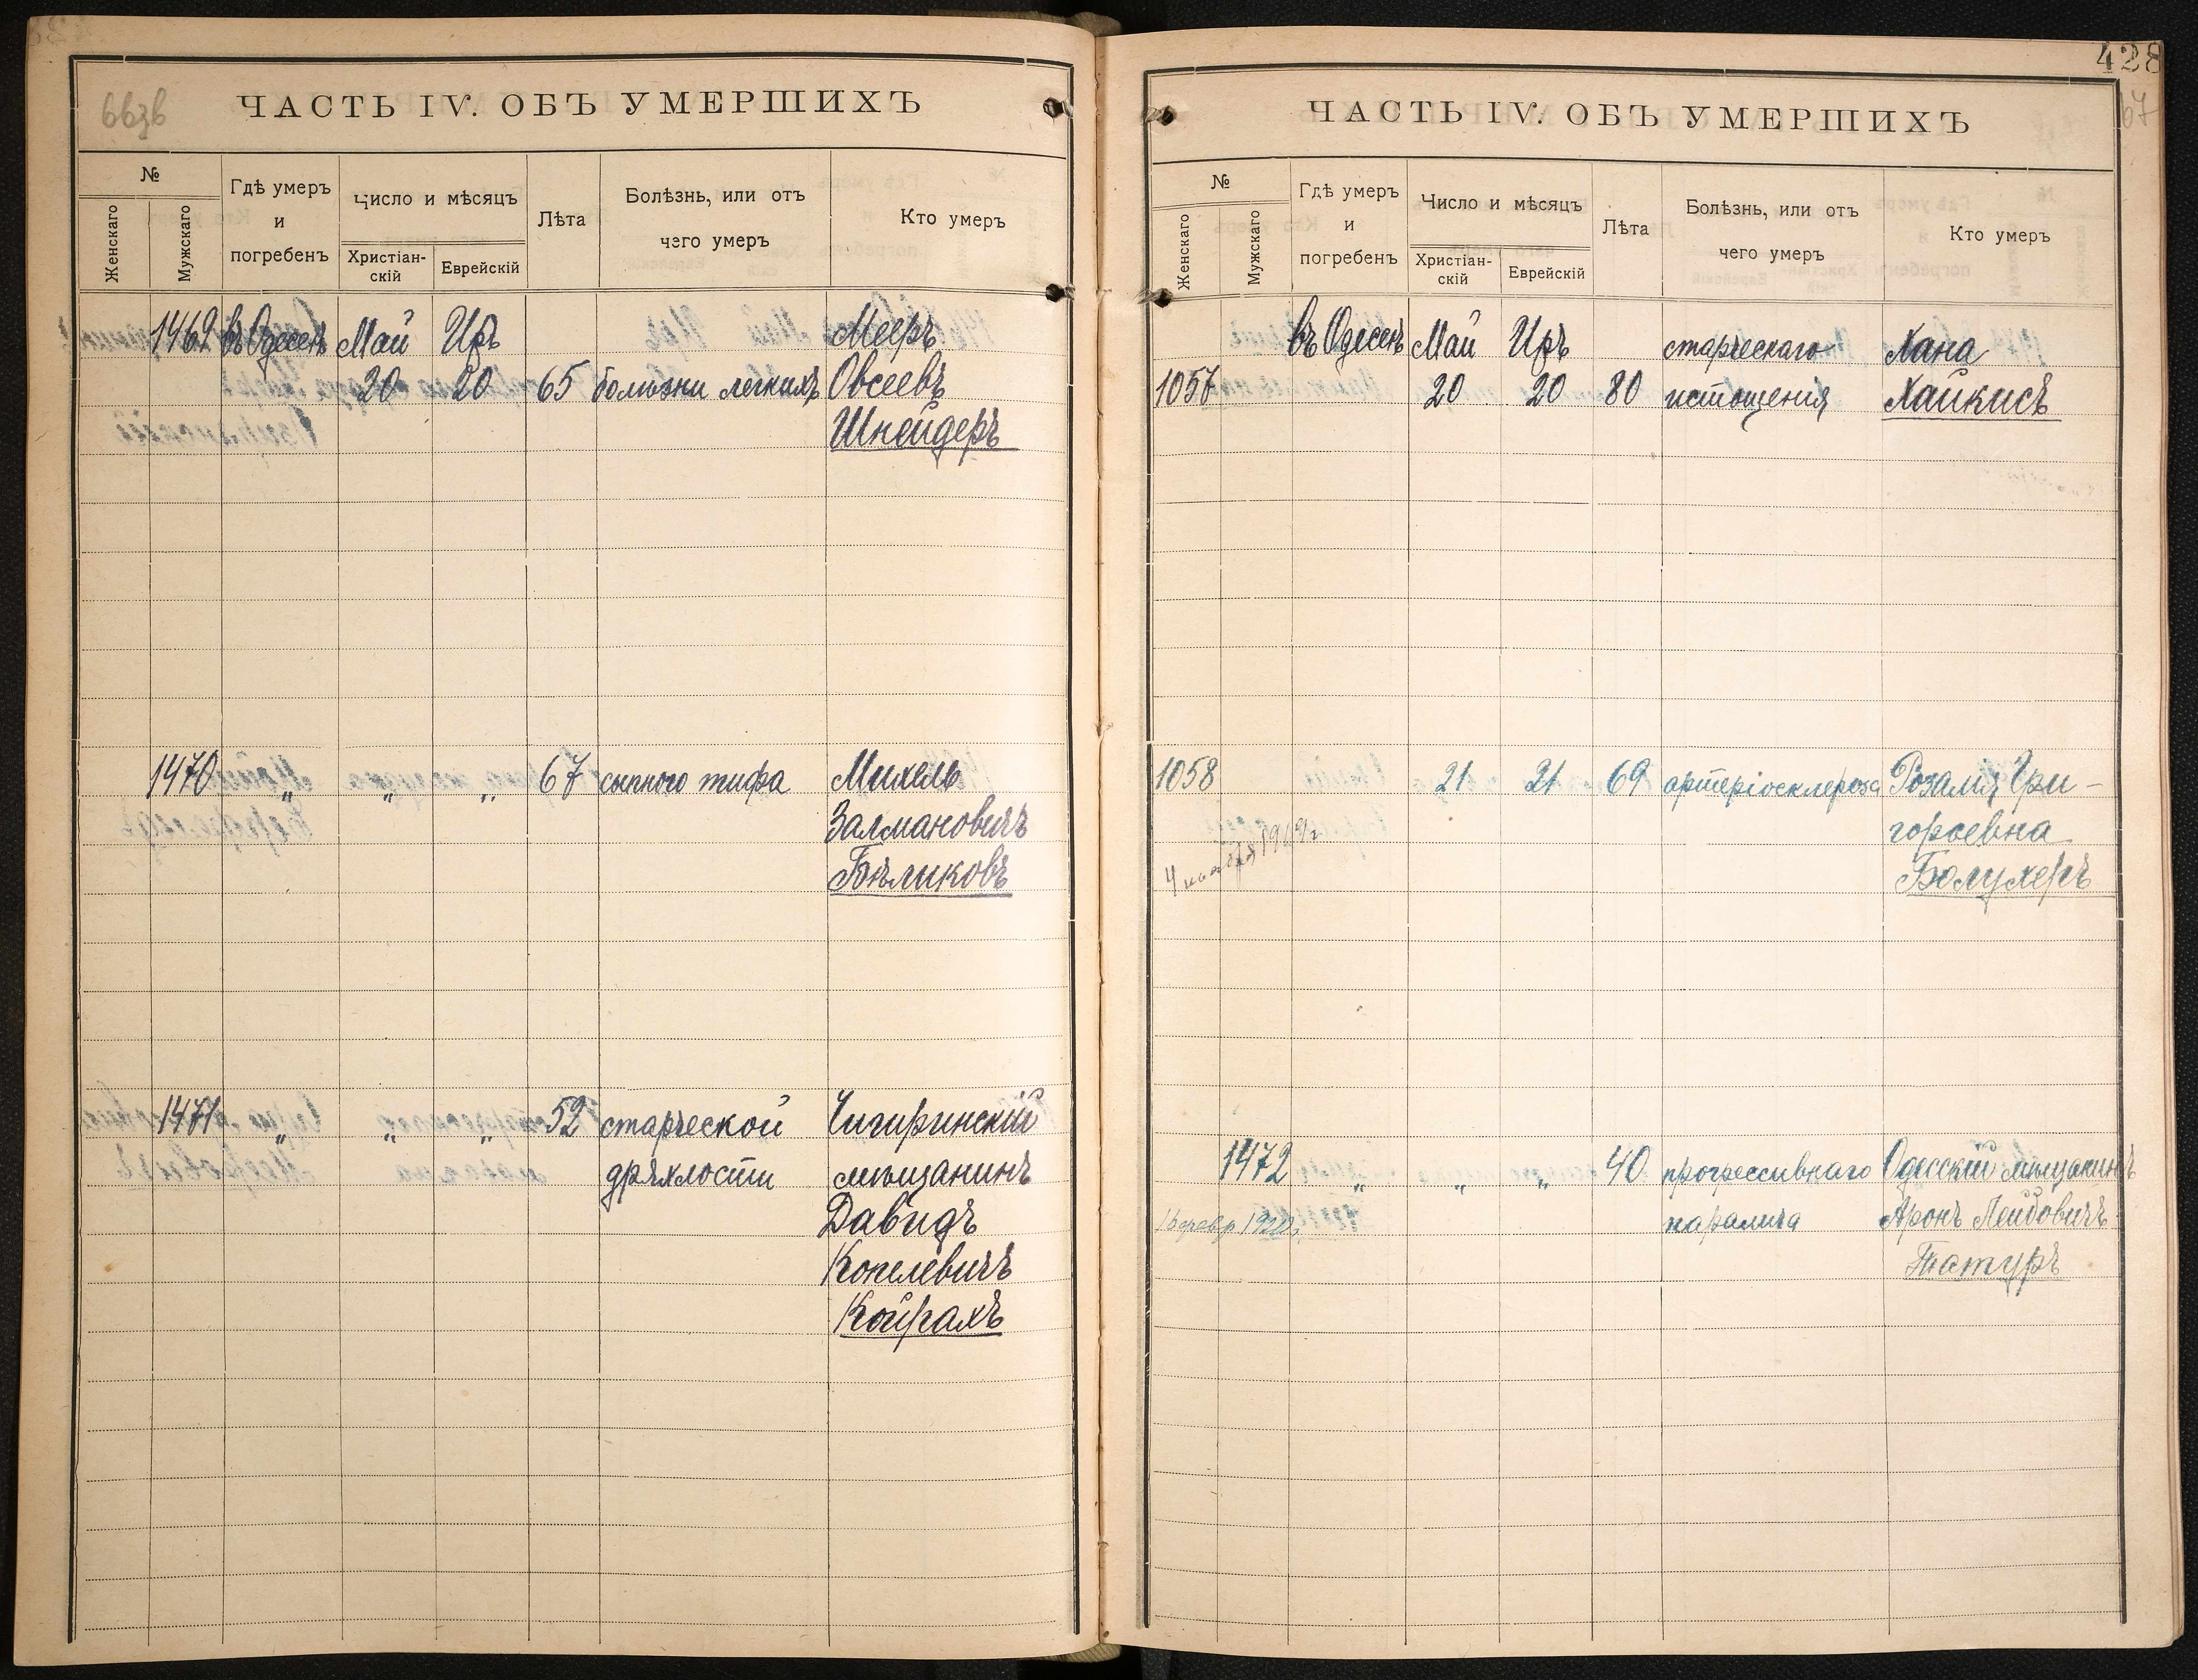 ЧАСТЬ IV. ОБЪ УМЕРШИХЪ
№
Женскаго
Мужскаго
Гдѣ умеръ
и
погребенъ
Число и мѣсяцъ
Христіан-
скій
Еврейскій
Лѣта
Болѣзнь, или отъ
чего умеръ
Кто умеръ
1469 въ Одессѣ Май Иръ Мееръ
20 20 65 болѣзни легкихъ Овсеевъ
Шнейдеръ
1470 „ „ „ 67 сыпного тифа Михель
Залмановичъ
Бѣликовъ
1471 „ „ „ 52 старческой Чигиринскій
дряхлости мѣщанинъ
Давидъ
Копелевичъ
Койрахъ
428
67
ЧАСТЬ IV. ОБЪ УМЕРШИХЪ
№
Женскаго
Мужскаго
Гдѣ умеръ
и
погребенъ
Число и мѣсяцъ
Христіан-
скій
Еврейскій
Лѣта
Болѣзнь, или отъ
чего умеръ
Кто умеръ
въ Одессѣ Май Иръ старческаго Хана
1057 20 20 80 истощенія Хайкисъ
1058 21 21 69 артеріосклероза Розалія Гри-
горьевна
4 1919 г
Болухеръ
1472 „ „ „ 40 прогрессивнаго Одесскій мѣщанинъ
паралича Аронъ Лейбовичъ
Татуръ